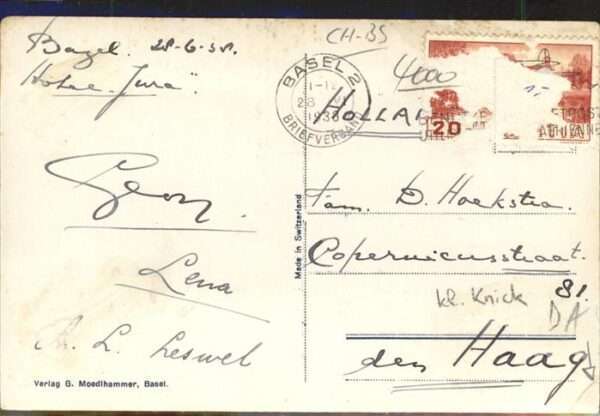 Bazel. 28-6-38.
Hotel "Jura"
Geor.
Lena
Th. L. Leswel
Verlag G. Moedlhammer, Basel.
Made in Switzerland
CH-BS
4000
BASEL 2
28
1938
BRIEFVERSAND
20
HOLLAND
Fam. D. Hoekstra.
Copernicusstraat.
81.
kl. Knick
DA
den Haag